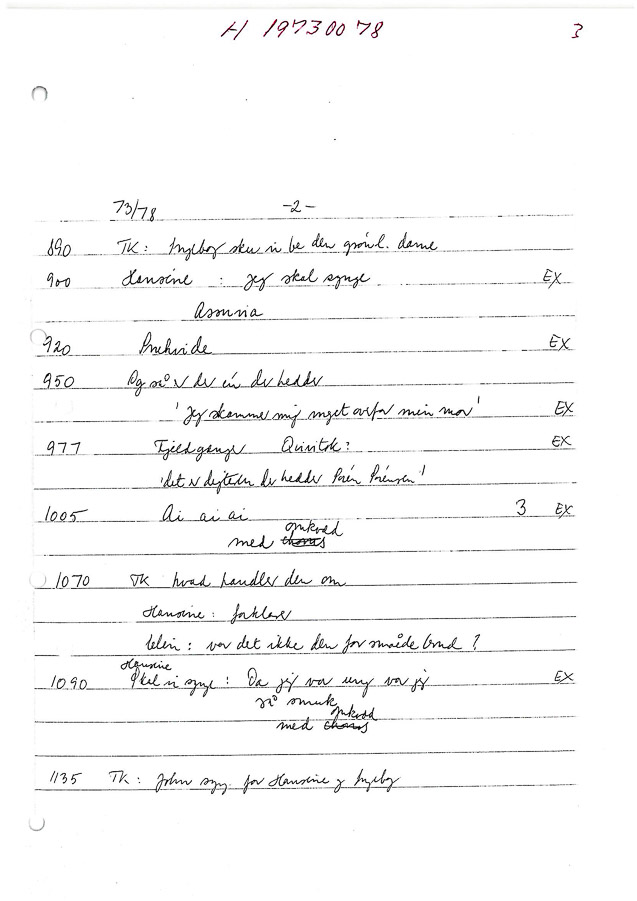 H 1973 00 78 3
73/78 -2-
890 TK: Ingeborg sku vi be den grønl. dame
900 Hansine : Jeg skal synge EX
Assuvia
920 EX
950 Og så er der én der hedder
'Jeg skammer mig meget overfor min mor' EX
977 Fjeldgænger Qivitok: EX
'det er digteren der hedder
1005 Ai ai ai 3 EX
omkvæd
med chorus
1070 TK hvad handler den om
Hansine: forklarer
: var det ikke den forsmåede brud ?
Hansine
1090 Skal vi synge : Da jeg var ung var jeg EX
så smuk
omkvæd
med chorus
1135 TK: John syng. for Hansine og Ingeborg